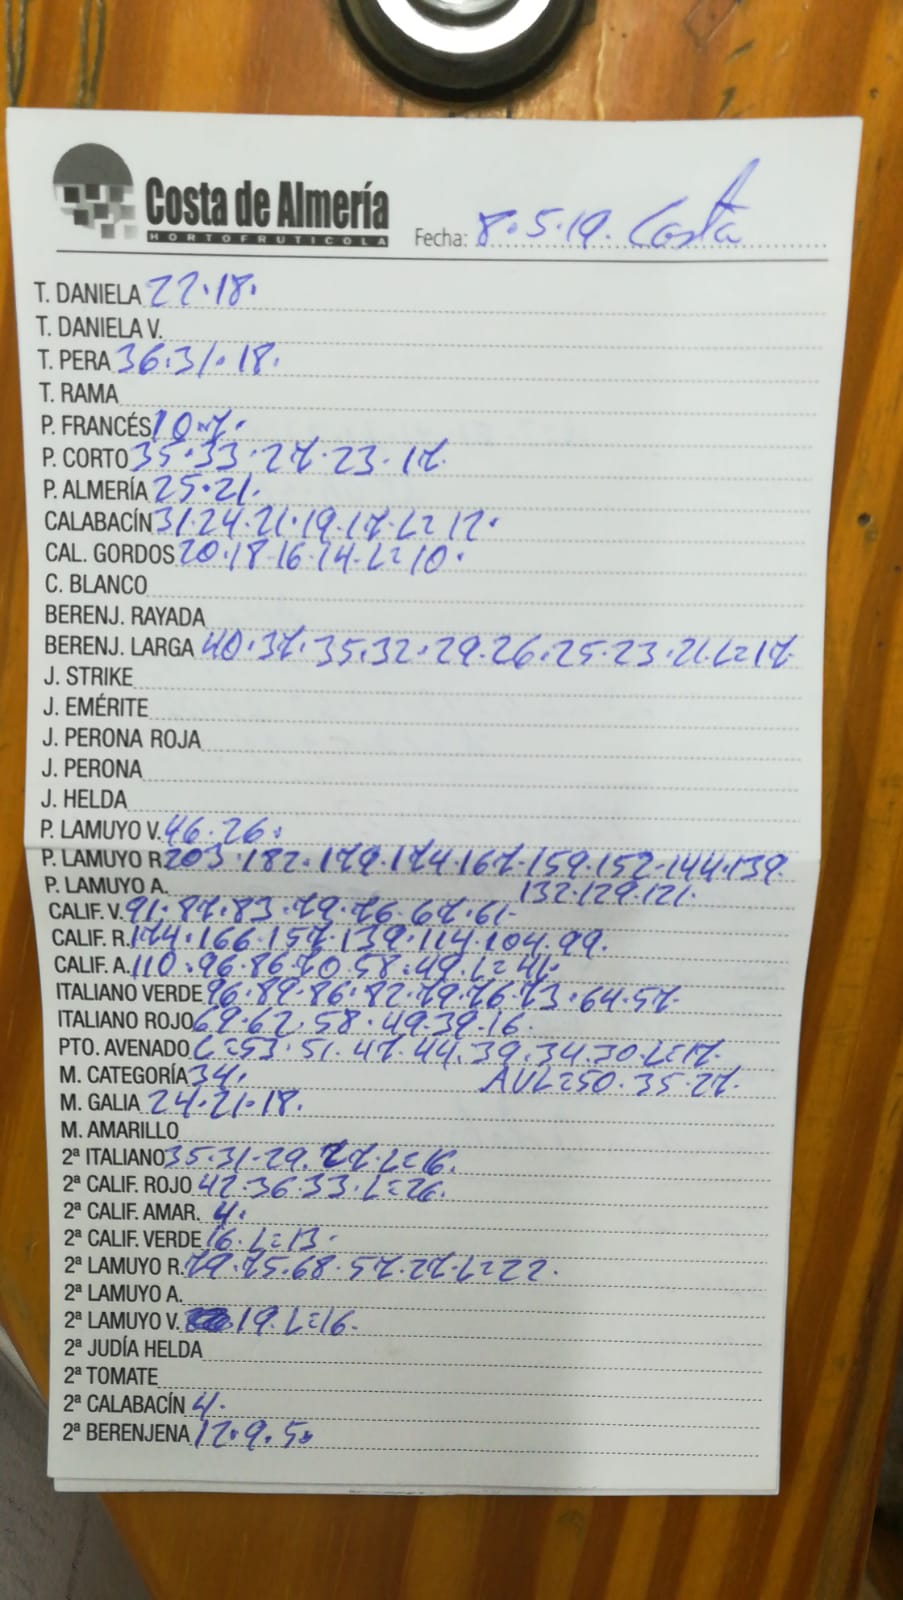 Costa de Almería
HORTOFRUTICOLA
Fecha: 8.5.19. Costa
T. DANIELA 22.18.
T. DANIELA V.
T. PERA 36.31.18.
T. RAMA
P. FRANCÉS 10.7.
P. CORTO 35.33.27.23.17.
P. ALMERÍA 25.21.
CALABACÍN 31.24.21.19.17.L=12.
CAL. GORDOS 20.18.16.14.L=10.
C. BLANCO
BERENJ. RAYADA
BERENJ. LARGA 40.37.35.32.29.26.25.23.21.L=17.
J. STRIKE
J. EMÉRITE
J. PERONA ROJA
J. PERONA
J. HELDA
P. LAMUYO V. 46.26.
P. LAMUYO R. 203.182.179.174.167.159.152.144.139.
P. LAMUYO A. 132.129.121.
CALIF. V. 91.87.83.79.76.67.61.
CALIF. R. 174.166.157.139.114.104.99.
CALIF. A. 110.96.86.70.58.49.L=41.
ITALIANO VERDE 96.89.86.82.79.76.73.64.57.
ITALIANO ROJO 69.62.58.49.39.16.
PTO. AVENADO L=53.51.47.44.39.34.30.L=17.
M. CATEGORÍA 34. AVL=50.35.27.
M. GALIA 24.21.18.
M. AMARILLO
2ª ITALIANO 35.31.29.27.L=16.
2ª CALIF. ROJO 42.36.33.L=26.
2ª CALIF. AMAR. 4.
2ª CALIF. VERDE 16.L=13.
2ª LAMUYO R. 79.75.68.57.27.L=22.
2ª LAMUYO A.
2ª LAMUYO V. 19.L=16.
2ª JUDÍA HELDA
2ª TOMATE
2ª CALABACÍN 4.
2ª BERENJENA 12.9.5.